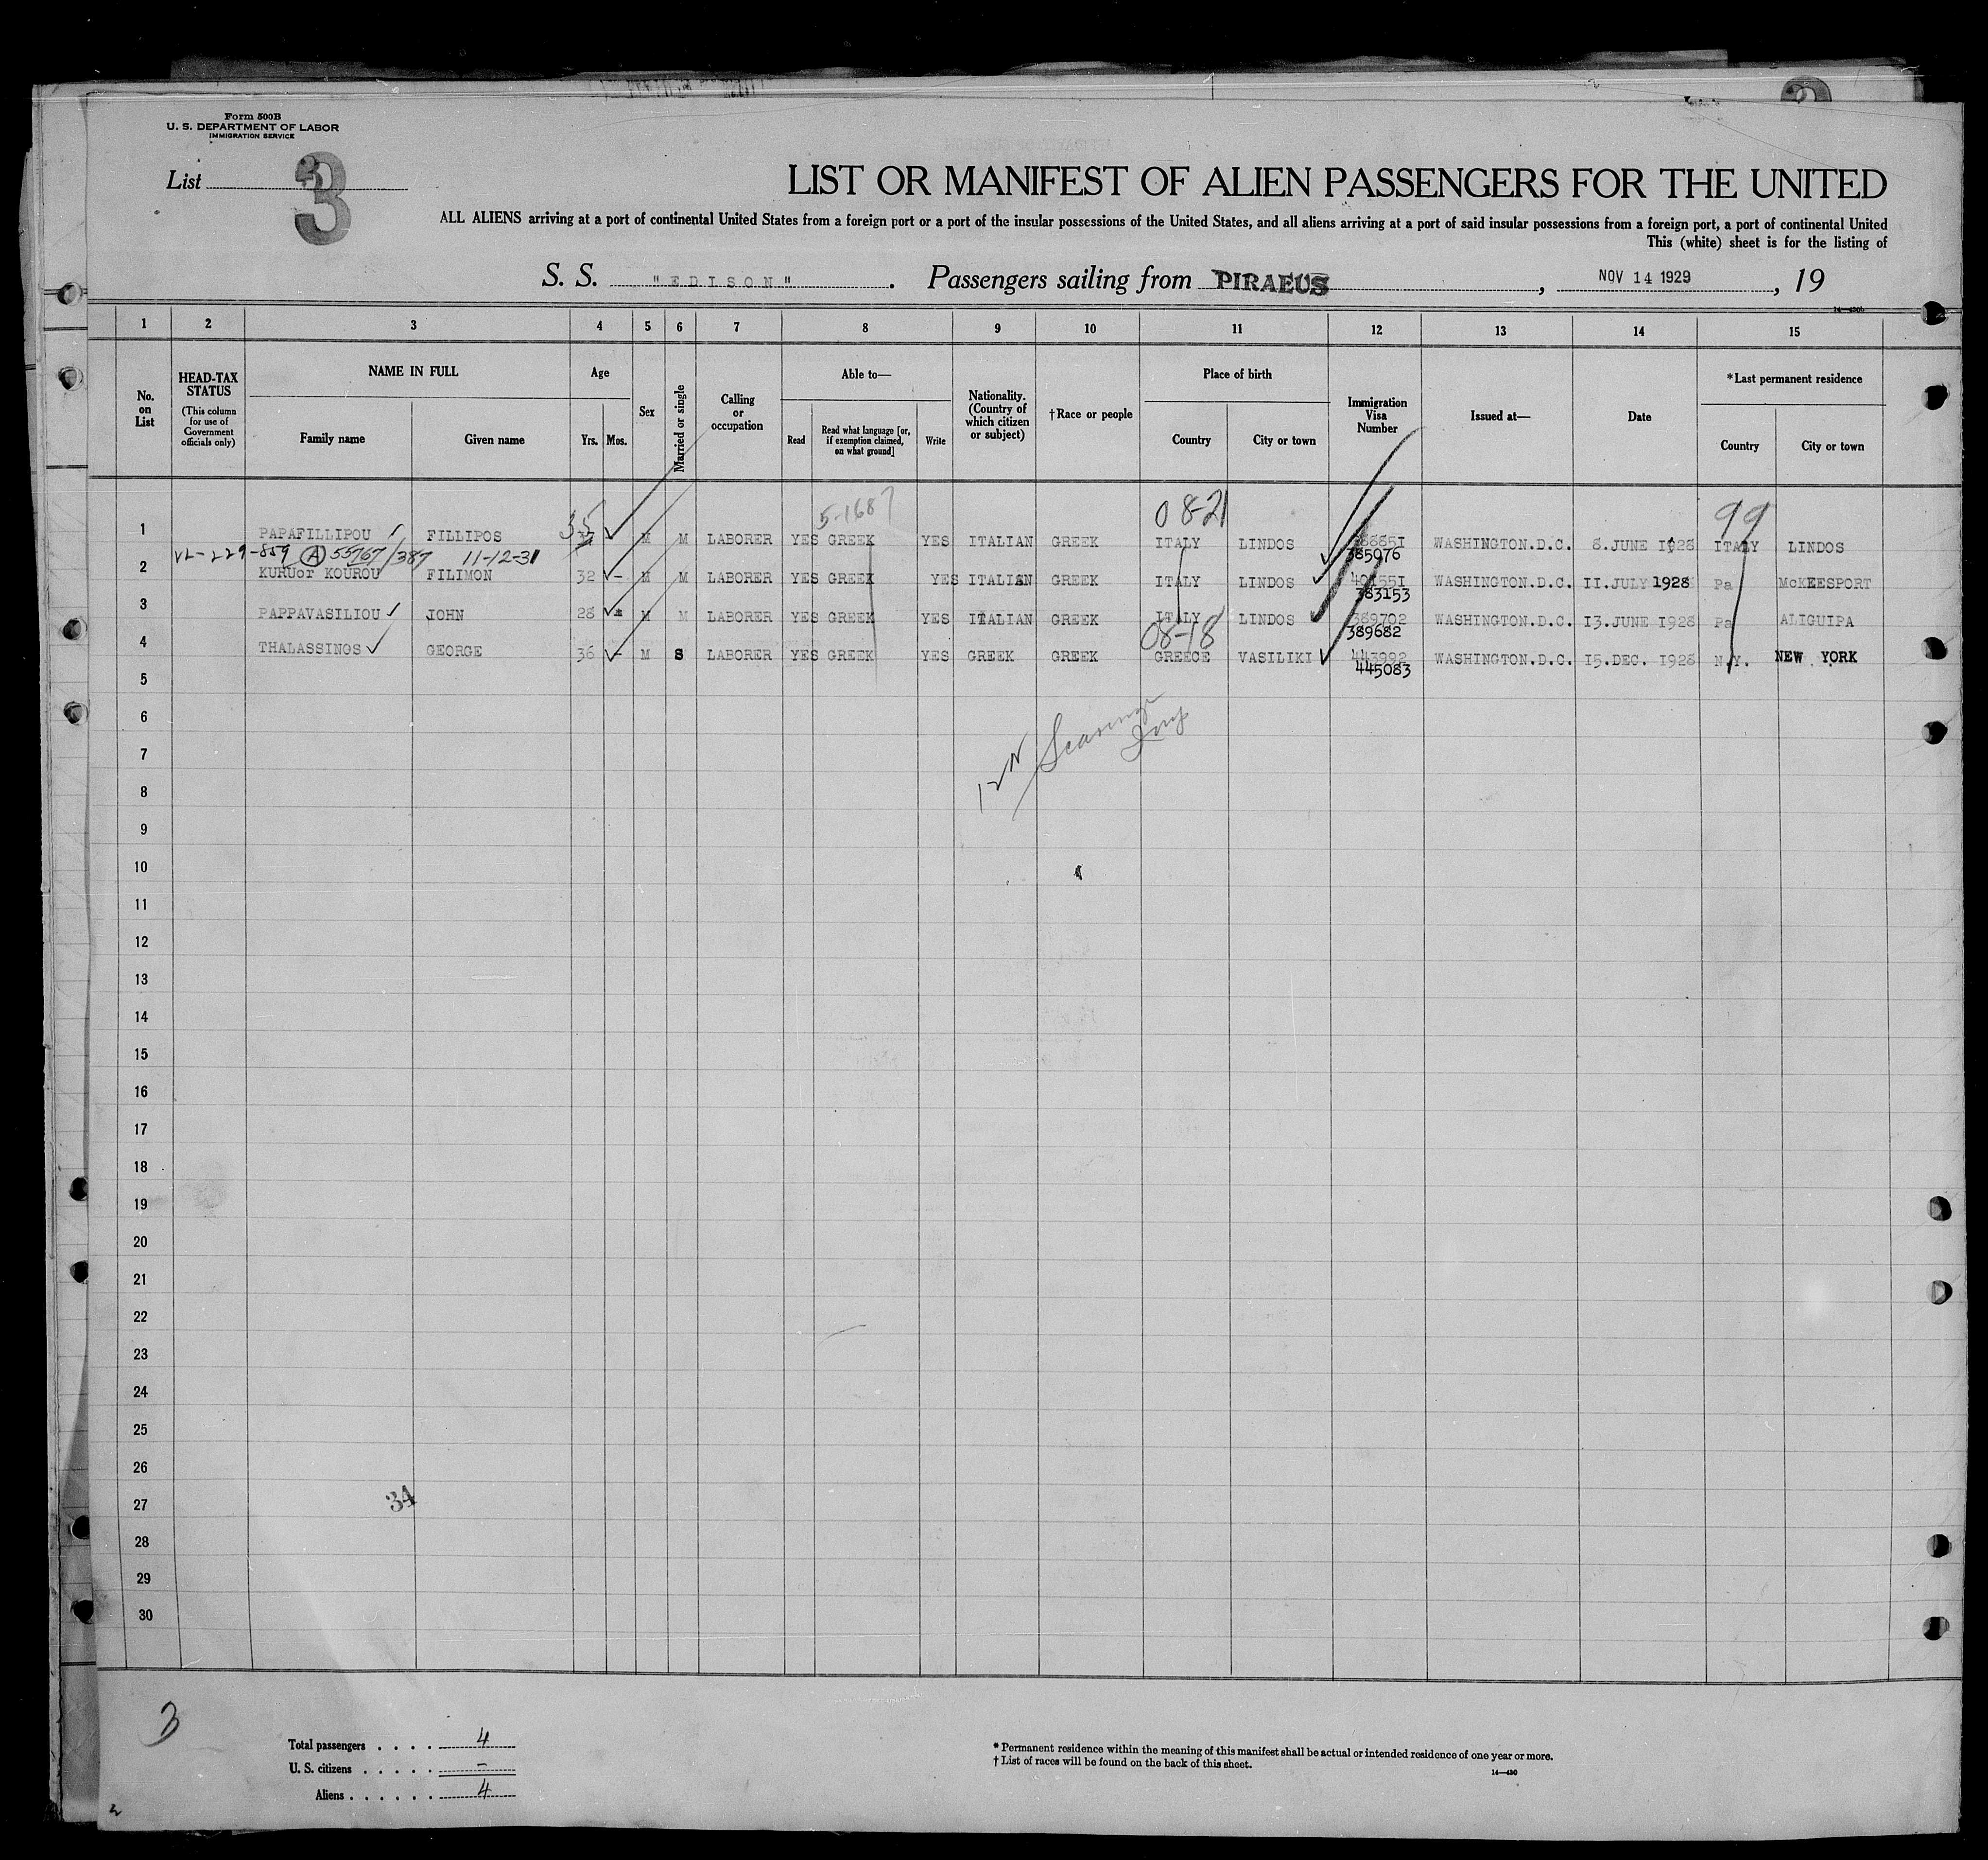 Form 500B
U. S. DEPARTMENT OF LABOR
IMMIGRATION SERVICE
List 3
LIST OR MANIFEST OF ALIEN PASSENGERS FOR THE UNITED
ALL ALIENS arriving at a port of continental United States from a foreign port or a port of the insular possessions of the United States, and all aliens arriving at a port of said insular possessions from a foreign port, a port of continental United
This (white) sheet is for the listing of
S. S. "EDISON" . Passengers sailing from PIRAEUS , NOV 14 1929 , 19
14—430b
1 2 3 4 5 6 7 8 9 10 11 12 13 14 15
No. on List
HEAD-TAX STATUS
(This column for use of Government officials only)
NAME IN FULL
Family name Given name
Age
Yrs. Mos.
Sex
Married or single
Calling or occupation
Able to—
Read Read what language [or, if exemption claimed, on what ground] Write
Nationality. (Country of which citizen or subject)
†Race or people
Place of birth
Country City or town
Immigration Visa Number
Issued at—
Date
*Last permanent residence
Country City or town
5-1687 08-21 99
1 PAPAFILLIPOU FILLIPOS 35 M M LABORER YES GREEK YES ITALIAN GREEK ITALY LINDOS 385076 WASHINGTON.D.C. 8.JUNE 1928 ITALY LINDOS
-229-859 (A) 55767/387 11-12-31
2 KURUor KOUROU FILIMON 32 - M M LABORER YES GREEK YES ITALIAN GREEK ITALY LINDOS 401551 383153 WASHINGTON.D.C. II.JULY 1928 Pa McKEESPORT
3 PAPPAVASILIOU JOHN 28 M M LABORER YES GREEK YES ITALIAN GREEK ITALY LINDOS 389702 389682 WASHINGTON.D.C. I3.JUNE I928 Pa ALIGUIPA
08-18
4 THALASSINOS GEORGE 36 - M S LABORER YES GREEK YES GREEK GREEK GREECE VASILIKI 443992 445083 WASHINGTON.D.C. I5.DEC. I928 N.Y. NEW YORK
5
6
7
8
9
10
11
12
13
14
15
16
17
18
19
20
21
22
23
24
25
26
27 34
28
29
30
3
Total passengers . . . . 4
U. S. citizens . . . . . -
Aliens . . . . . . 4
* Permanent residence within the meaning of this manifest shall be actual or intended residence of one year or more.
† List of races will be found on the back of this sheet.
14—430